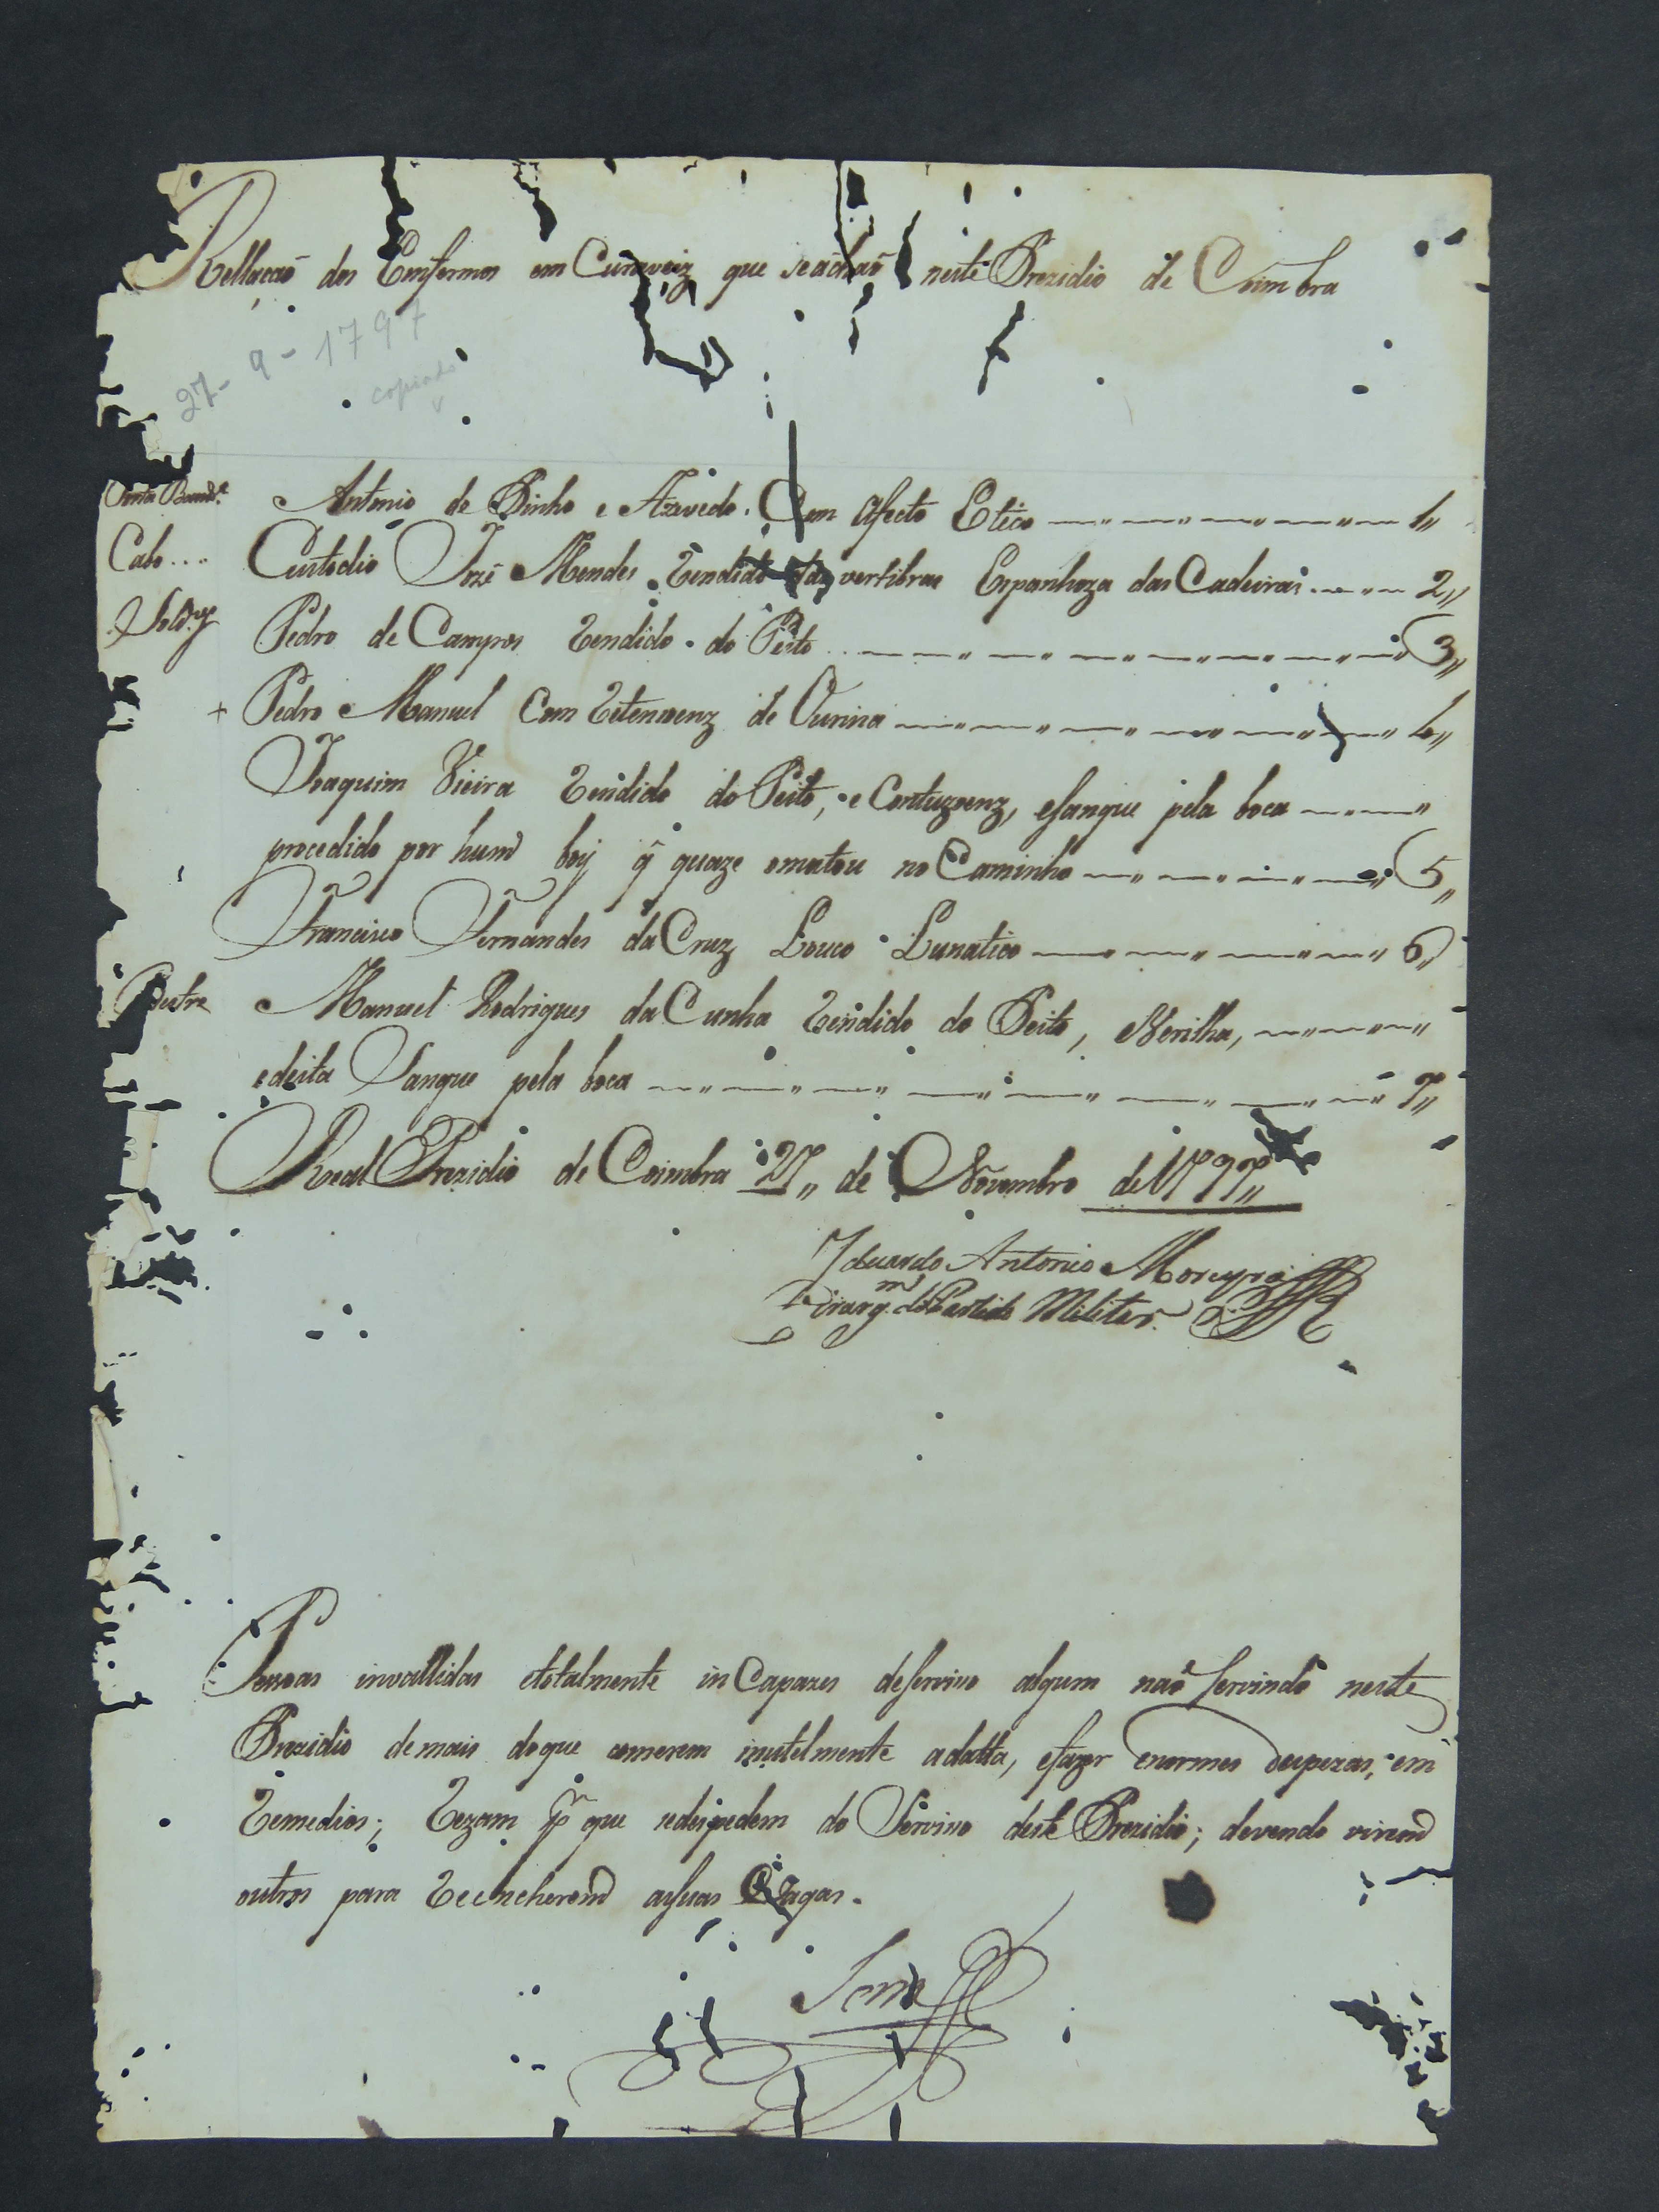 Rellação dos Emfermos em Curaveiz que se achaõ neste Prezidio de Coimbra
27-9-1797
copiado
v
Porta Band.ª Antonio de Pinho e Azevedo. Com Afecto Etico 1,,
Cabo.... Custodio Jozé Mendes Rendido das vertibras Espanhoza das Cadeiras 2,,
Sold.es Pedro de Campos Rendido do Peito 3,,
+ Pedro Manuel Com Retensoenz de Ourina 4,,
Joaquim Vieira Rendido do Peito, e Contuzoenz, esangue pela boca
procedido por hum boy q̃ quaze omatou no Caminho 5,,
Francisco Fernandes da Cruz Louco Lunatico 6,,
Pedestre Manuel Rodrigues da Cunha Rendido do Peito, eVerilha,
edeita Sangue pela boca 7,,
Real Prezidio de Coimbra 27,, de Novembro de 1797,,
Eduardo Antonio Moreyra
Cirurg.m da Partida Militar
Pessoas invallidas etotalmente inCapazes deServiso algum naõ Servindo neste
Prezidio demais doque comerem inutelmente adatta, efazer enormes despezas, em
Remedios; Rezam pr que sedespedem do Serviso deste Prezidio; devendo virem
outros para Reencherem asSuas Vagas.